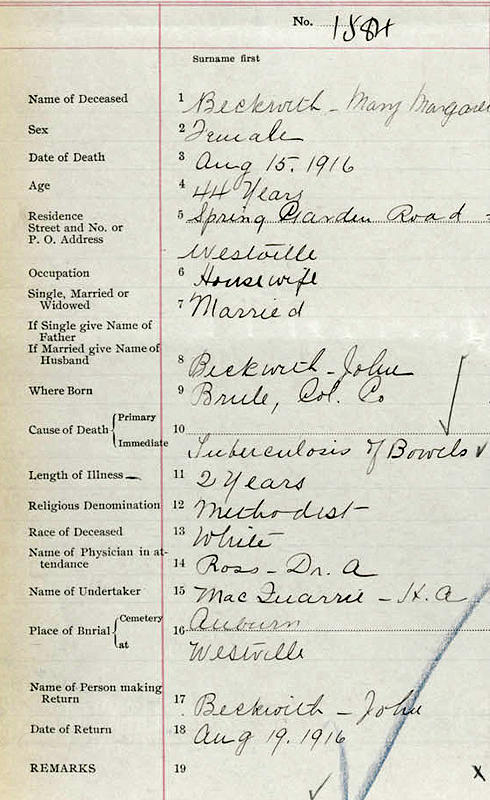 No. 1584
Surname first
Name of Deceased 1 Beckwith - Mary Margaret
Sex 2 Female
Date of Death 3 Aug 15. 1916
Age 4 44 Years
Residence 5 Spring Garden Road -
Street and No. or
P. O. Address Westville
Occupation 6 Housewife
Single, Married or
Widowed 7 Married
If Single give Name of
Father
If Married give Name of
Husband 8 Beckwith - John
Where Born 9 Brule, Col. Co
Cause of Death { Primary 10
Immediate Tuberculosis of Bowels
Length of Illness 11 2 Years
Religious Denomination 12 Methodist
Race of Deceased 13 White
Name of Physician in at-
tendance 14 Ross - Dr. A
Name of Undertaker 15 MacQuarrie - H. A
Place of Burial { Cemetery 16 Auburn
at Westville
Name of Person making
Return 17 Beckwith - John
Date of Return 18 Aug 19. 1916
REMARKS 19 x